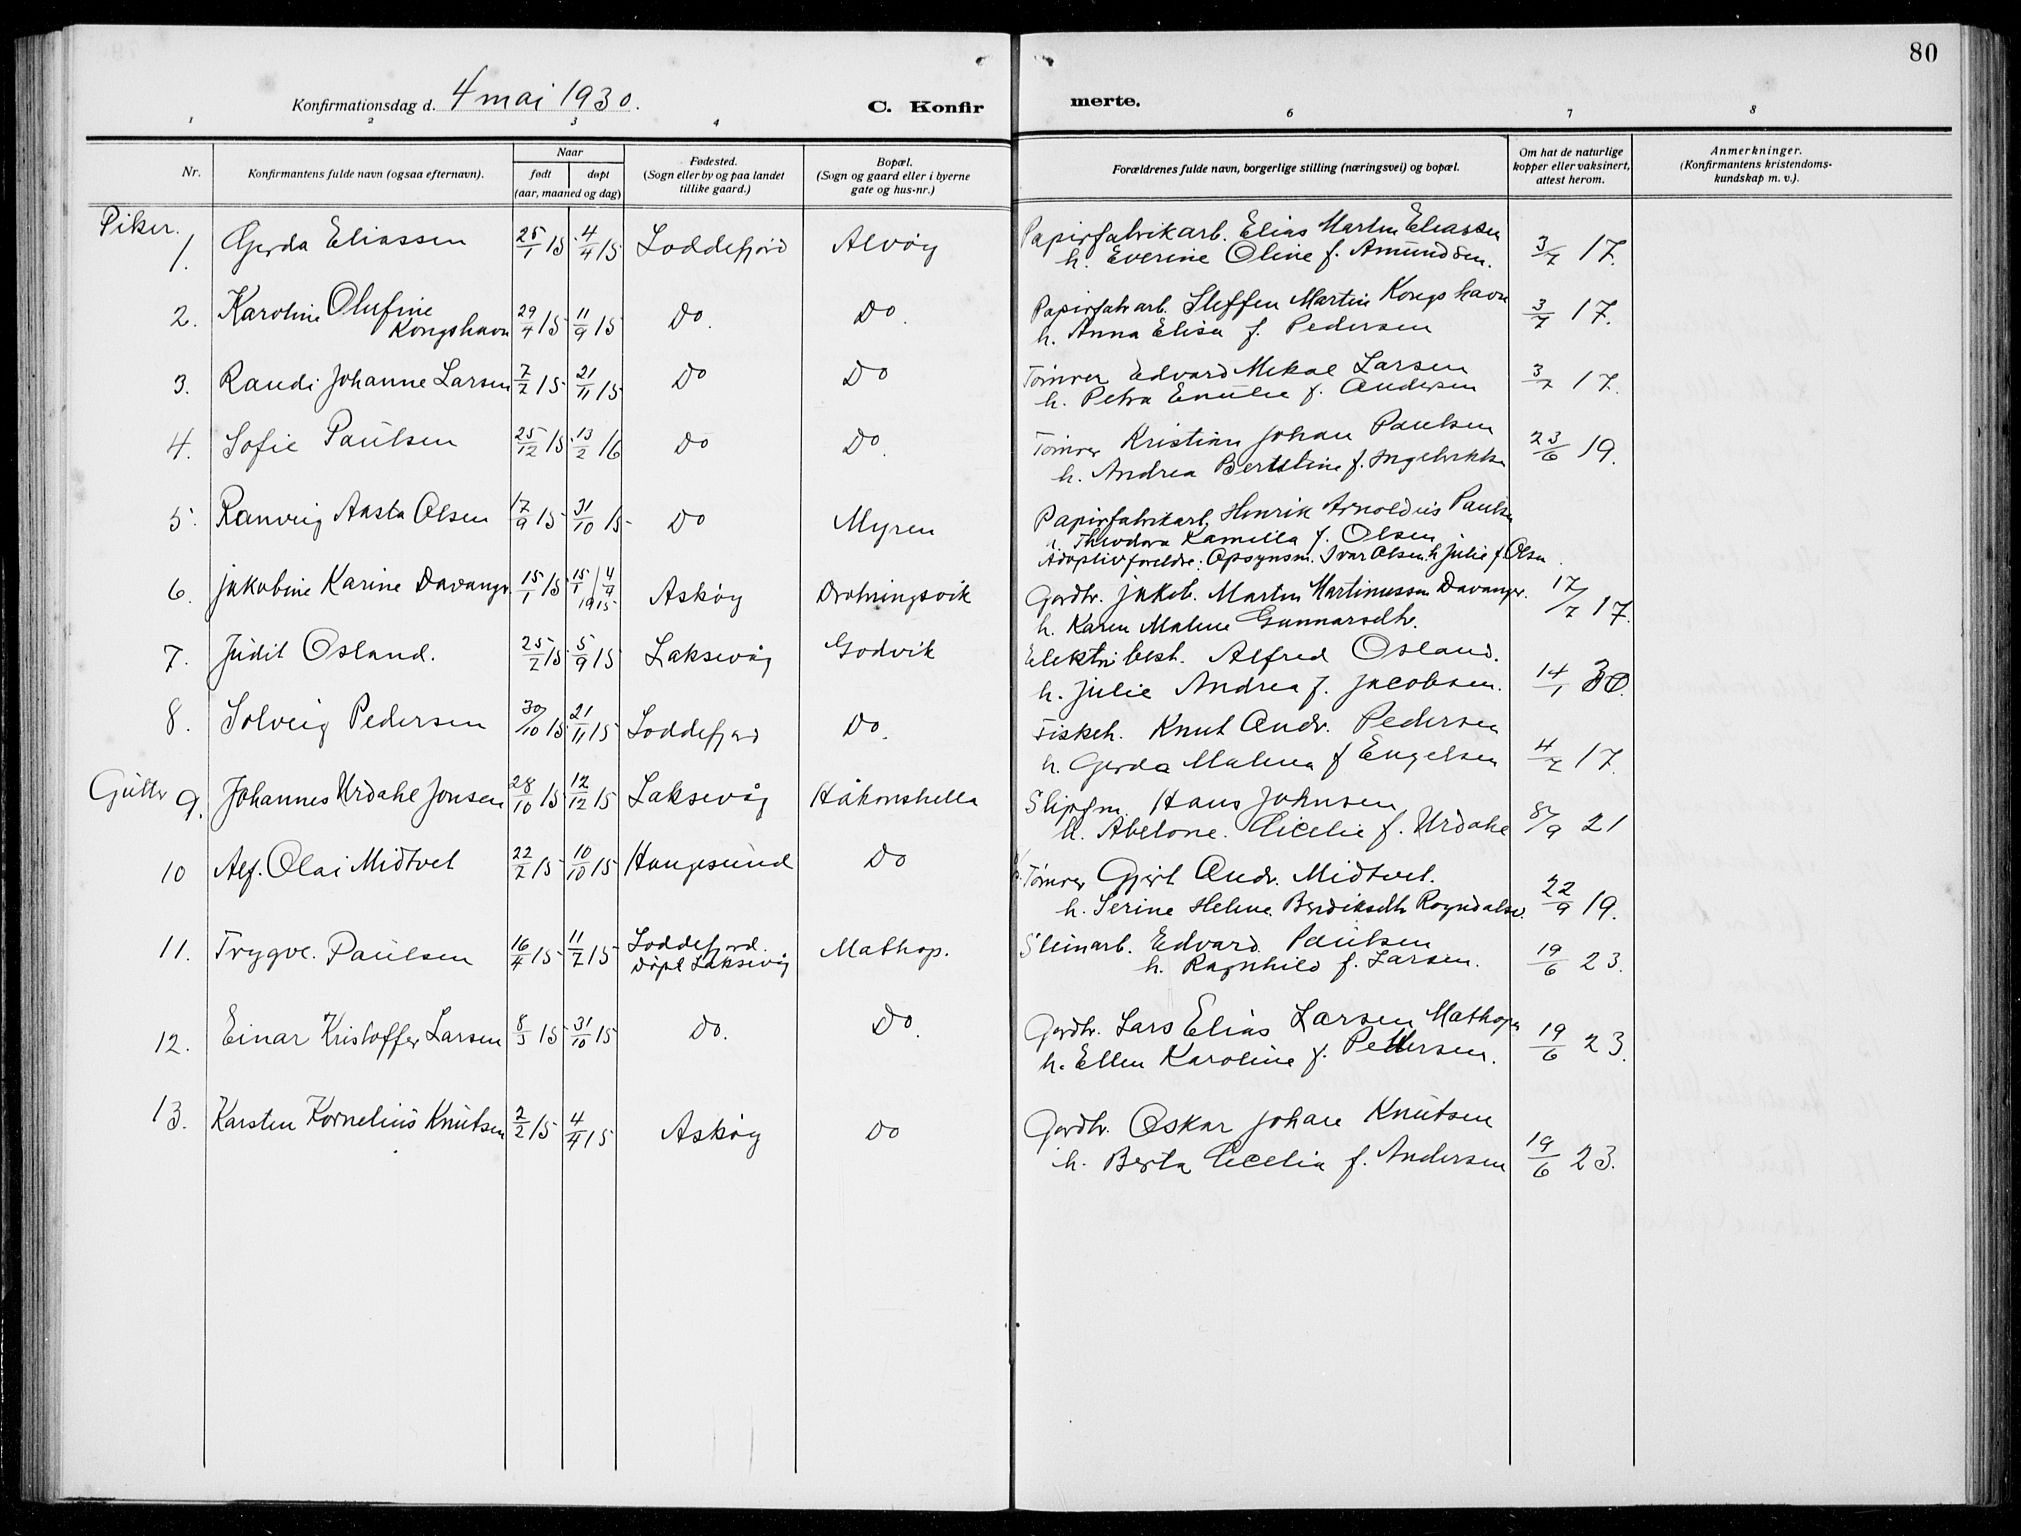 80
Konfirmationsdag d. 4 mai 1930.
C. Konfir
merte.
1 2 3 4 6 7 8
Nr.
Konfirmantens fulde navn (ogsaa efternavn).
Naar
født døpt
(aar, maaned og dag)
Fødested.
(Sogn eller by og paa landet
tillike gaard.)
Bopæl.
(Sogn og gaard eller i byerne
gate og hus-nr.)
Forældrenes fulde navn, borgerlige stilling (næringsvei) og bopæl.
Om hat de naturlige
kopper eller vaksinert,
attest herom.
Anmerkninger.
(Konfirmantens kristendoms-
kundskap m. v.).
Piker.
1. Gerda Eliassen 25/1 15 4/4 15 Loddefjord Alvøy
Papirfabrikarb. Elias Martin Eliassen
h. Everine Oline f. Amundsen. 3/7 17.
2. Karoline Olufine
Kongshavn 29/4 15 11/9 15 Do. Do.
Papirfabrarb. Steffen Martin Kongshavn
h. Anna Elisa f. Pedersen 3/7 17.
3. Randi Johanne Larsen 7/7 15 21/11 15 Do Do
Tømrer Edvard Mekal Larsen
h. Petra Emilie f. Andersen 3/7 17.
4. Sofie Paulsen 25/12 15 13/2 16 Do Do.
Tømrer Kristian Johan Paulsen
h. Andrea Bertiline f. Ingebriktsen 23/6 19.
5. Ranveig Aasta Olsen 17/9 15 31/10 15 Do Myren
Papirfabrikarb. Henrik Arnoldus Paulsen
h. Theodora Kamilla f. Olsen
Adoptivforeldre: Opsynsm. Ivar Olsen h. Julie f. Olsen.
6. Jakobine Karine Davanger 15/1 15 15/1 | 4/4 1915 Askøy Drotningsvik
Gardbr. Jakob Martin Martinussen Davanger.
h. Karen Malene Gunnarsdtr. 17/7 17.
7. Judit Osland. 25/7 15 5/9 15 Laksevåg Godvik
Elektr. best. Alfred Osland.
h. Julie Andrea f. Jacobsen. 14/1 30.
8. Solveig Pedersen 30/10 15 21/11 15 Loddefjord Do.
Fiskeh. Knut Andr. Pedersen
h. Gerda Malena f Engelsen 4/7 17.
Gutter
9. Johannes Urdahl Jonsen 28/10 15 12/12 15 Laksevåg Håkonshella
Slipfm. Hans Johnsen
h. Abelone Cicelie f. Urdahl 8/9 21
10 Alf. Olai Midtvet 22/7 15 10/10 15 Haugesund Do
Tømrer Gjert Andr. Midtvet.
h. Serine Helene Berdiksdtr Rogndalsv. 22/9 19.
11. Trygve. Paulsen 16/4 15 11/7 15 Loddefjord.
Døpt Laksevåg Mathop.
Steinarb. Edvard Paulsen
h. Ragnhild f. Larsen. 19/6 23.
12. Einar Kristoffer Larsen 8/3 15 31/10 15 Do. Do.
Gardbr. Lars Elias Larsen Mathopen
h. Ellen Karoline f. Pettersen. 19/6 23.
13. Karsten Kornelius Knutsen 2/2 15 4/4 15 Askøy Do
Gardbr. Oskar Johan Knutsen
h. Berta Cecelia f. Andersen 19/6 23.